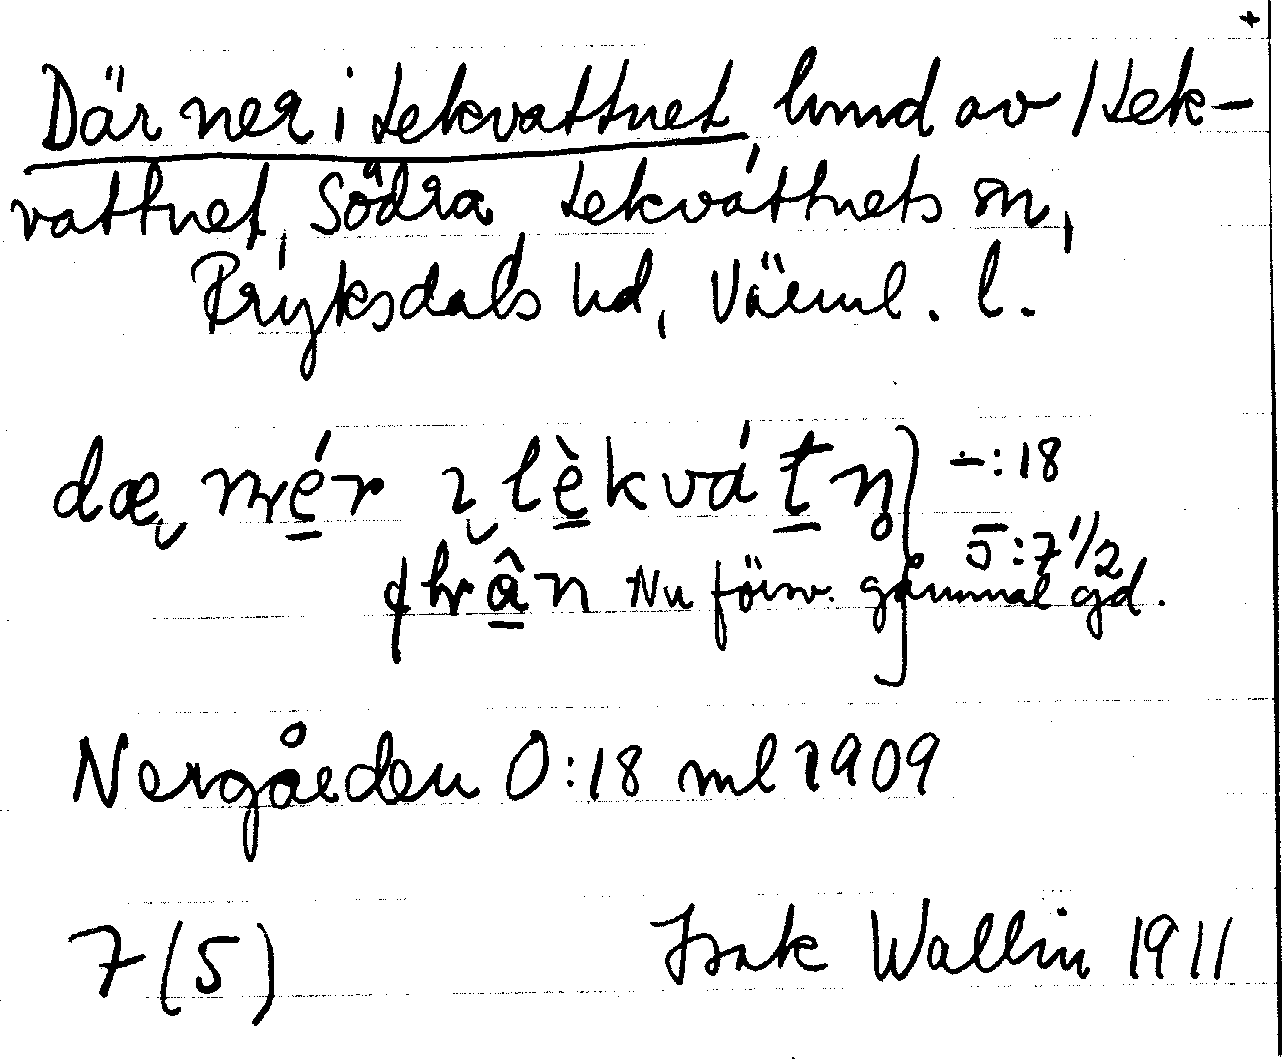 +
Där ner i Lekvattnet, hmd av 1 Lek-
vattnet, Södra Lekvattnets sn,
Fryksdals hd, Värml. l.
dæ̮ nér ı̮ lèkvátn̥ –:18
från Nu försv. gammal gd. 5:7 1/2
Nergården 0:18 ml 1909
7 (5) Isak Wallin 1911